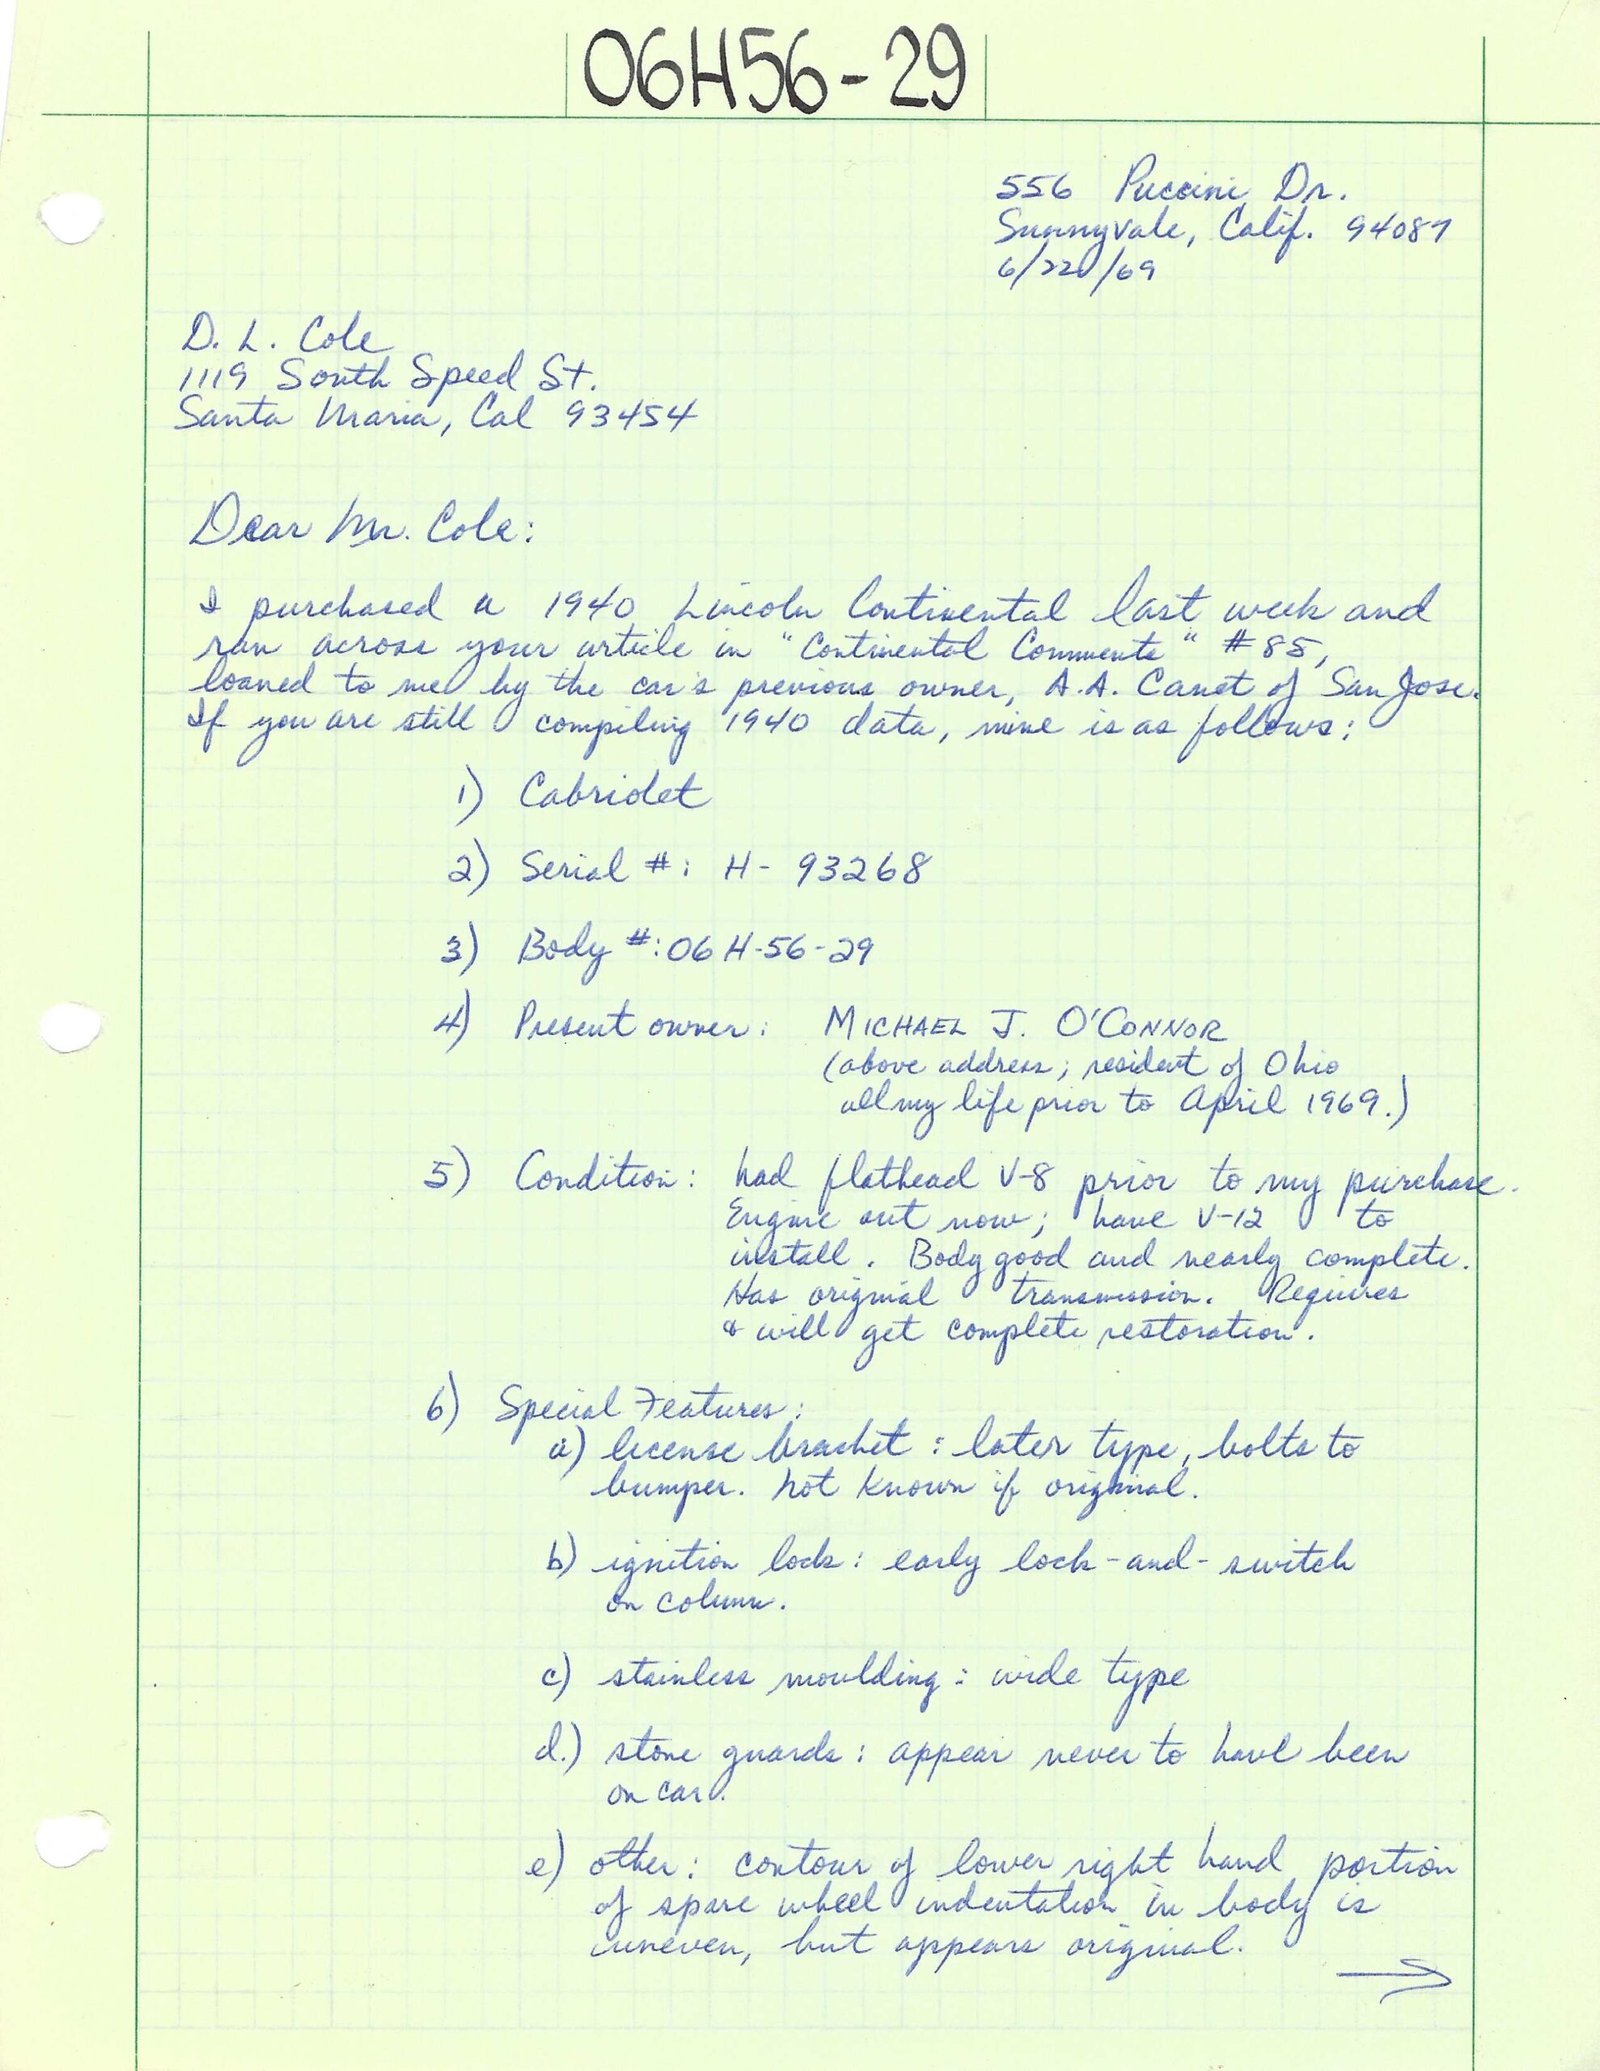 06H56-29
556 Puccini Dr.
Sunnyvale, Calif. 94087
6/22/69
D. L. Cole
1119 South Speed St.
Santa Maria, Cal 93454
Dear Mr. Cole:
I purchased a 1940 Lincoln Continental last week and
ran across your article in "Continental Comments" #85,
loaned to me by the car's previous owner, A.A. Canet of San Jose.
If you are still compiling 1940 data, mine is as follows:
1) Cabriolet
2) Serial #: H- 93268
3) Body #: 06 H-56-29
4) Present owner: MICHAEL J. O'CONNOR
(above address; resident of Ohio
all my life prior to April 1969.)
5) Condition: had flathead V-8 prior to my purchase.
Engine out now; have V-12 to
install. Body good and nearly complete.
Has original transmission. Requires
& will get complete restoration.
6) Special Features:
a) license bracket: later type, bolts to
bumper. not known if original.
b) ignition lock: early lock-and-switch
on column.
c) stainless moulding: wide type
d.) stone guards: appear never to have been
on car.
e) other: contour of lower right hand portion
of spare wheel indentation in body is
uneven, but appears original.
→